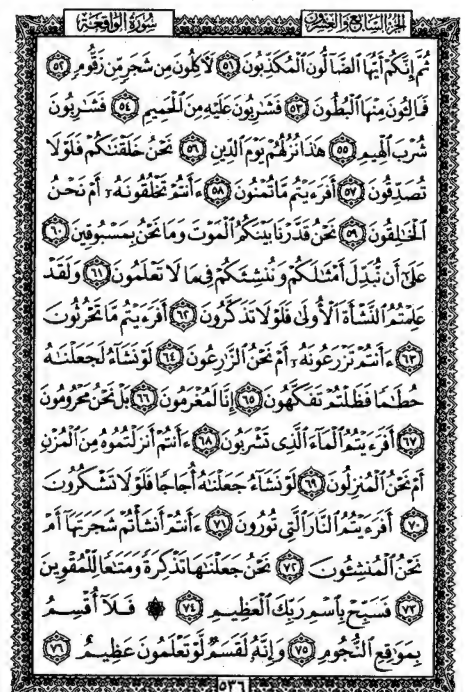 سُورَةُ الوَاقِعَةِ
الجُزْءُ السَّابِعُ وَالعِشْرُونَ
ثُمَّ إِنَّكُمْ أَيُّهَا ٱلضَّآلُّونَ ٱلْمُكَذِّبُونَ ٥١ لَأٓكِلُونَ مِن شَجَرٍ مِّن زَقُّومٍ ٥٢
فَمَالِـُٔونَ مِنْهَا ٱلْبُطُونَ ٥٣ فَشَٰرِبُونَ عَلَيْهِ مِنَ ٱلْحَمِيمِ ٥٤ فَشَٰرِبُونَ
شُرْبَ ٱلْهِيمِ ٥٥ هَٰذَا نُزُلُهُمْ يَوْمَ ٱلدِّينِ ٥٦ نَحْنُ خَلَقْنَٰكُمْ فَلَوْلَا
تُصَدِّقُونَ ٥٧ أَفَرَءَيْتُم مَّا تُمْنُونَ ٥٨ ءَأَنتُمْ تَخْلُقُونَهُۥٓ أَمْ نَحْنُ
ٱلْخَٰلِقُونَ ٥٩ نَحْنُ قَدَّرْنَا بَيْنَكُمُ ٱلْمَوْتَ وَمَا نَحْنُ بِمَسْبُوقِينَ ٦٠
عَلَىٰٓ أَن نُّبَدِّلَ أَمْثَٰلَكُمْ وَنُنشِئَكُمْ فِى مَا لَا تَعْلَمُونَ ٦١ وَلَقَدْ
عَلِمْتُمُ ٱلنَّشْأَةَ ٱلْأُولَىٰ فَلَوْلَا تَذَكَّرُونَ ٦٢ أَفَرَءَيْتُم مَّا تَحْرُثُونَ
٦٣ ءَأَنتُمْ تَزْرَعُونَهُۥٓ أَمْ نَحْنُ ٱلزَّٰرِعُونَ ٦٤ لَوْ نَشَآءُ لَجَعَلْنَٰهُ
حُطَٰمًا فَظَلْتُمْ تَفَكَّهُونَ ٦٥ إِنَّا لَمُغْرَمُونَ ٦٦ بَلْ نَحْنُ مَحْرُومُونَ
٦٧ أَفَرَءَيْتُمُ ٱلْمَآءَ ٱلَّذِى تَشْرَبُونَ ٦٨ ءَأَنتُمْ أَنزَلْتُمُوهُ مِنَ ٱلْمُزْنِ
أَمْ نَحْنُ ٱلْمُنزِلُونَ ٦٩ لَوْ نَشَآءُ جَعَلْنَٰهُ أُجَاجًا فَلَوْلَا تَشْكُرُونَ
٧٠ أَفَرَءَيْتُمُ ٱلنَّارَ ٱلَّتِى تُورُونَ ٧١ ءَأَنتُمْ أَنشَأْتُمْ شَجَرَتَهَآ أَمْ
نَحْنُ ٱلْمُنشِـُٔونَ ٧٢ نَحْنُ جَعَلْنَٰهَا تَذْكِرَةً وَمَتَٰعًا لِّلْمُقْوِينَ
٧٣ فَسَبِّحْ بِٱسْمِ رَبِّكَ ٱلْعَظِيمِ ٧٤ ۞ فَلَآ أُقْسِمُ
بِمَوَٰقِعِ ٱلنُّجُومِ ٧٥ وَإِنَّهُۥ لَقَسَمٌ لَّوْ تَعْلَمُونَ عَظِيمٌ ٧٦
٥٣٦